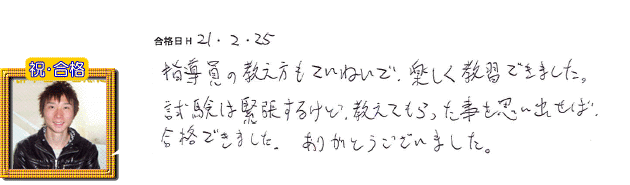 合格日 H 21・2・25
祝・合格
指導員の教え方もていねいで、楽しく教習できました。
試験は緊張するけど、教えてもらった事を思い出せば、
合格できました。ありがとうございました。